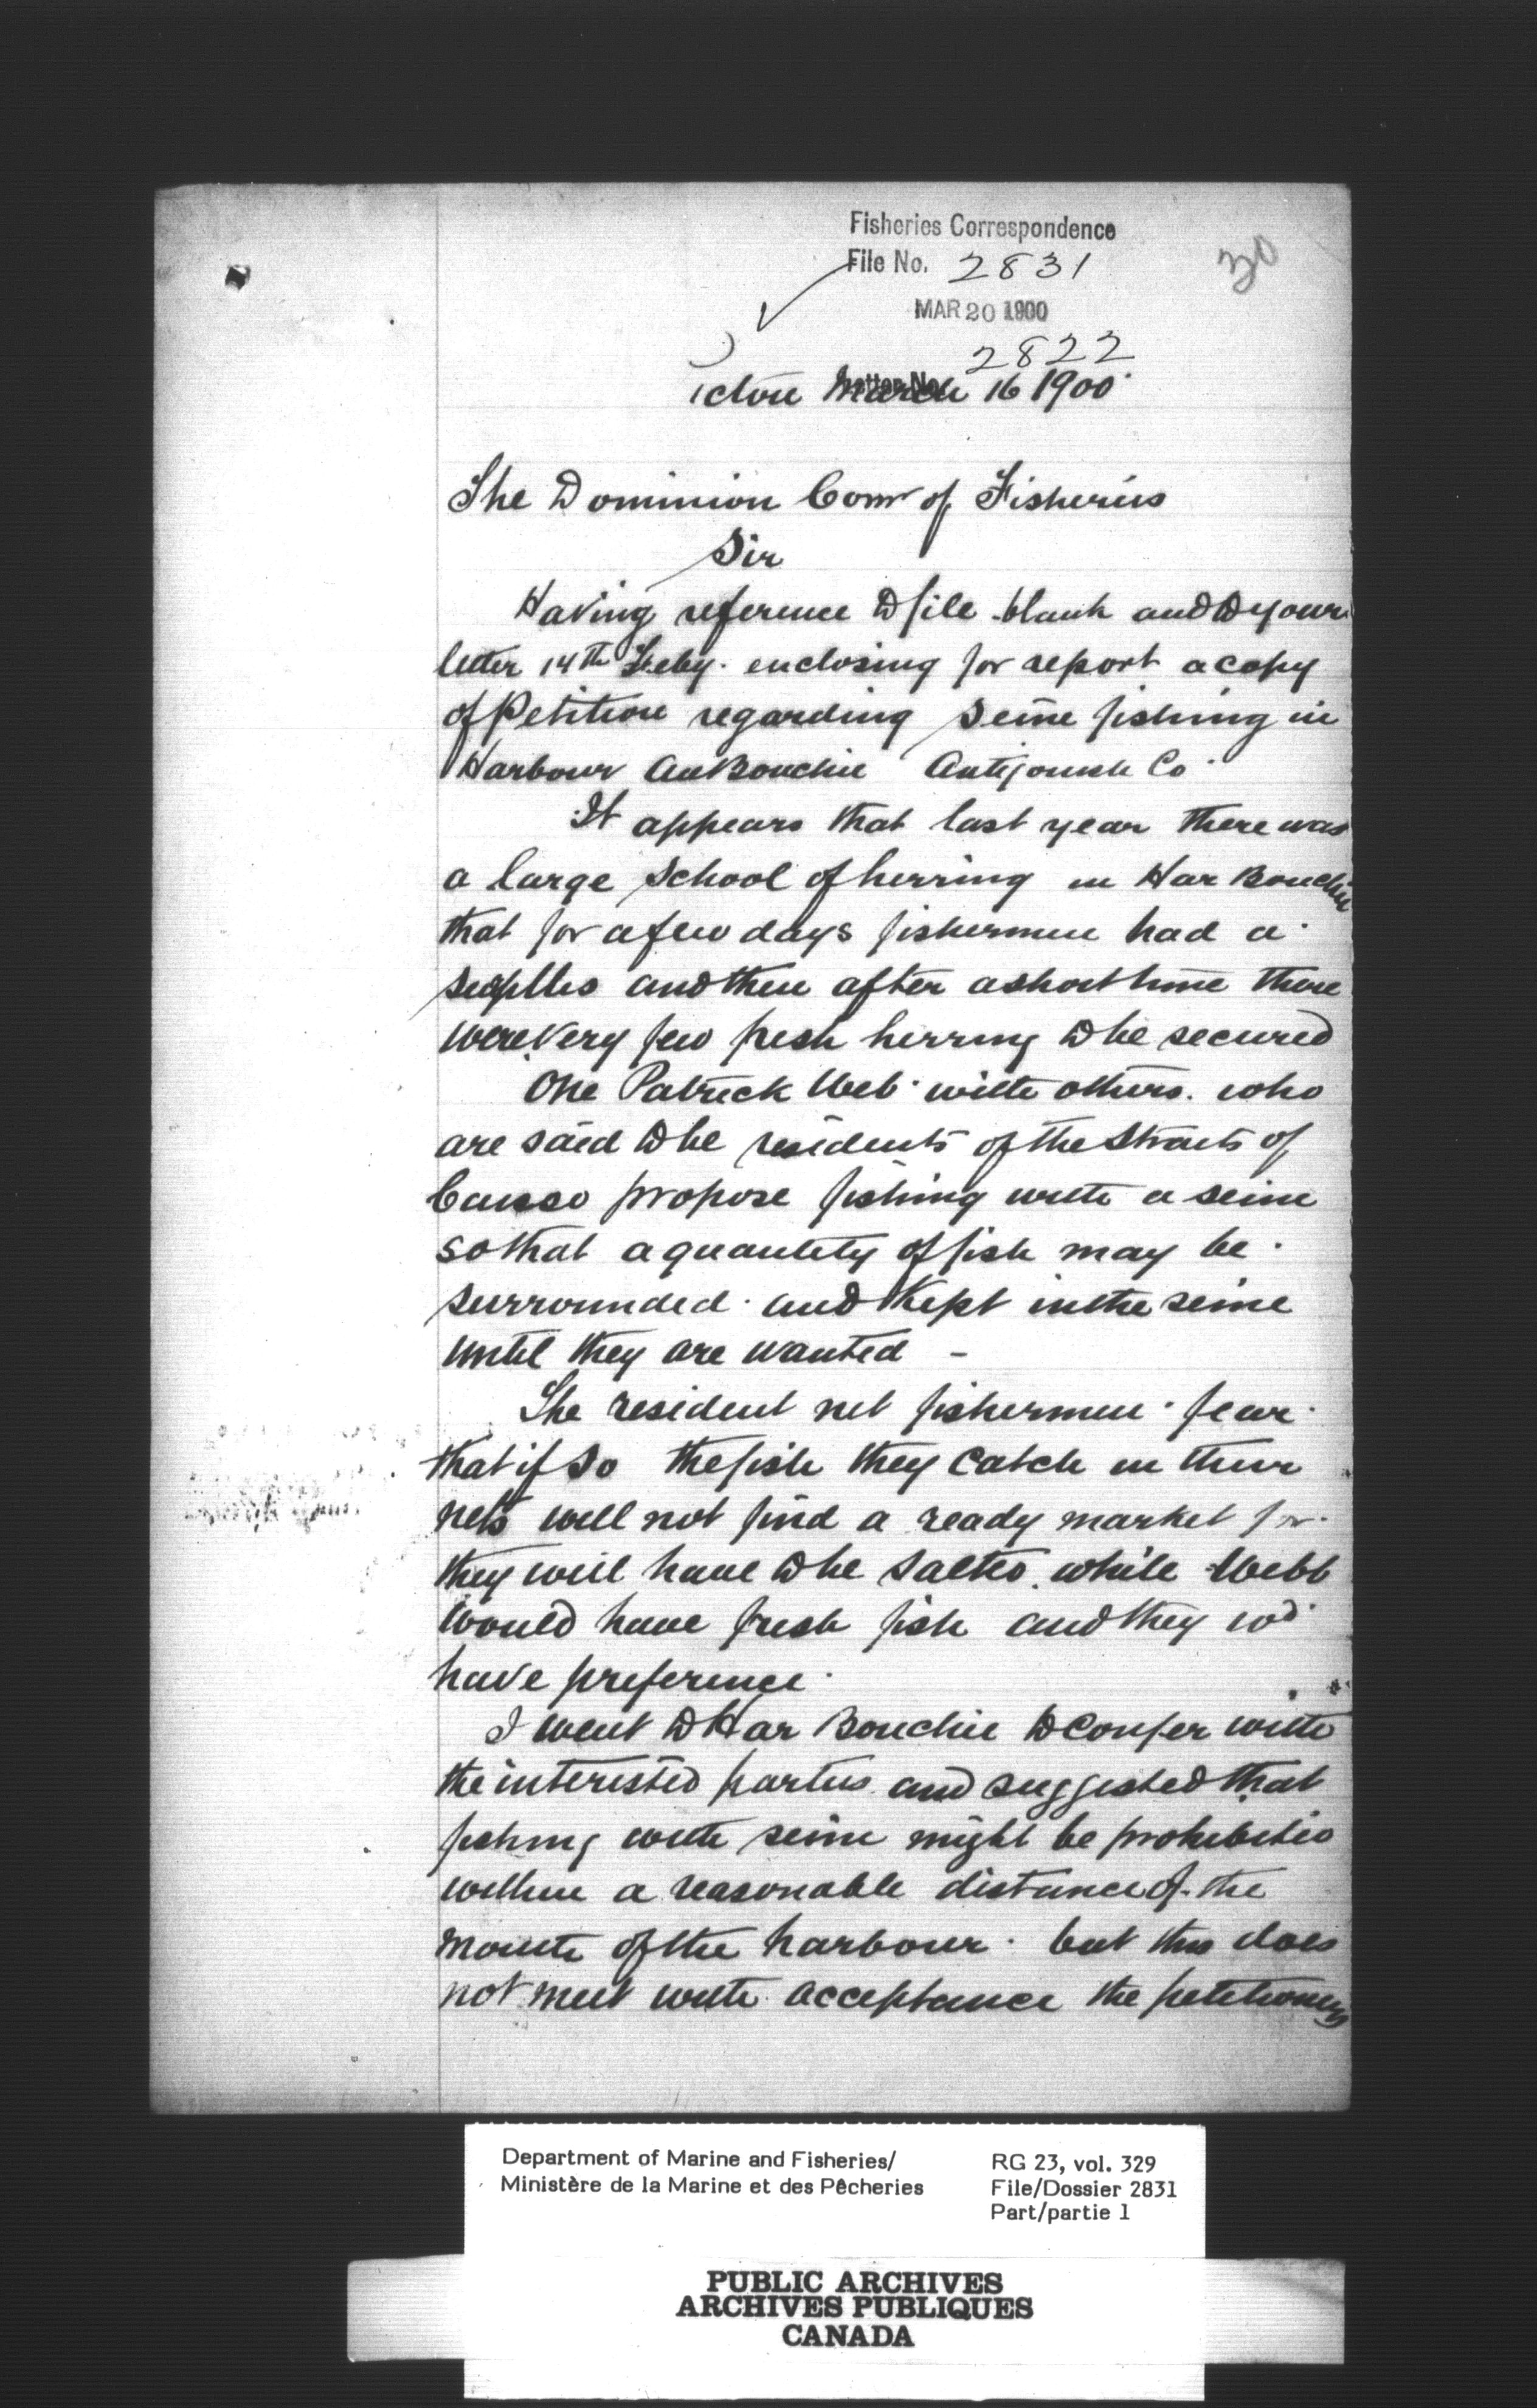 Fisheries Correspondence
File No. 2831
30
MAR 20 1900
2822
Letter No.
ictou March 16 1900
The Dominion Comr of Fisheries
Sir
Having reference to file blank and to your
letter 14th Feby. enclosing for report a copy
of Petition regarding seine fishing in
Harbour AuBouchie Antigonish Co.
It appears that last year there was
a large school of herring in Har Bouchie
that for a few days fishermen had a
and then after a short time there
were very few fresh herring to be secured
One Patrick Web with others. who
are said to be residents of the Straits of
Canso propose fishing with a seine
so that a quantity of fish may be
surrounded and Kept in the seine
until they are wanted -
The resident net fishermen fear
that if so the fish they catch in their
nets will not find a ready market for
they will have to be salted. while Webb
would have fresh fish and they wd
have preference.
I went to Har Bouchie to confer with
the interested parties and suggested that
fishing with seine might be prohibited
within a reasonable distance of the
mouth of the harbour. but this does
not meet with acceptance the petitioners
Department of Marine and Fisheries/
Ministère de la Marine et des Pêcheries
RG 23, vol. 329
File/Dossier 2831
Part/partie 1
PUBLIC ARCHIVES
ARCHIVES PUBLIQUES
CANADA